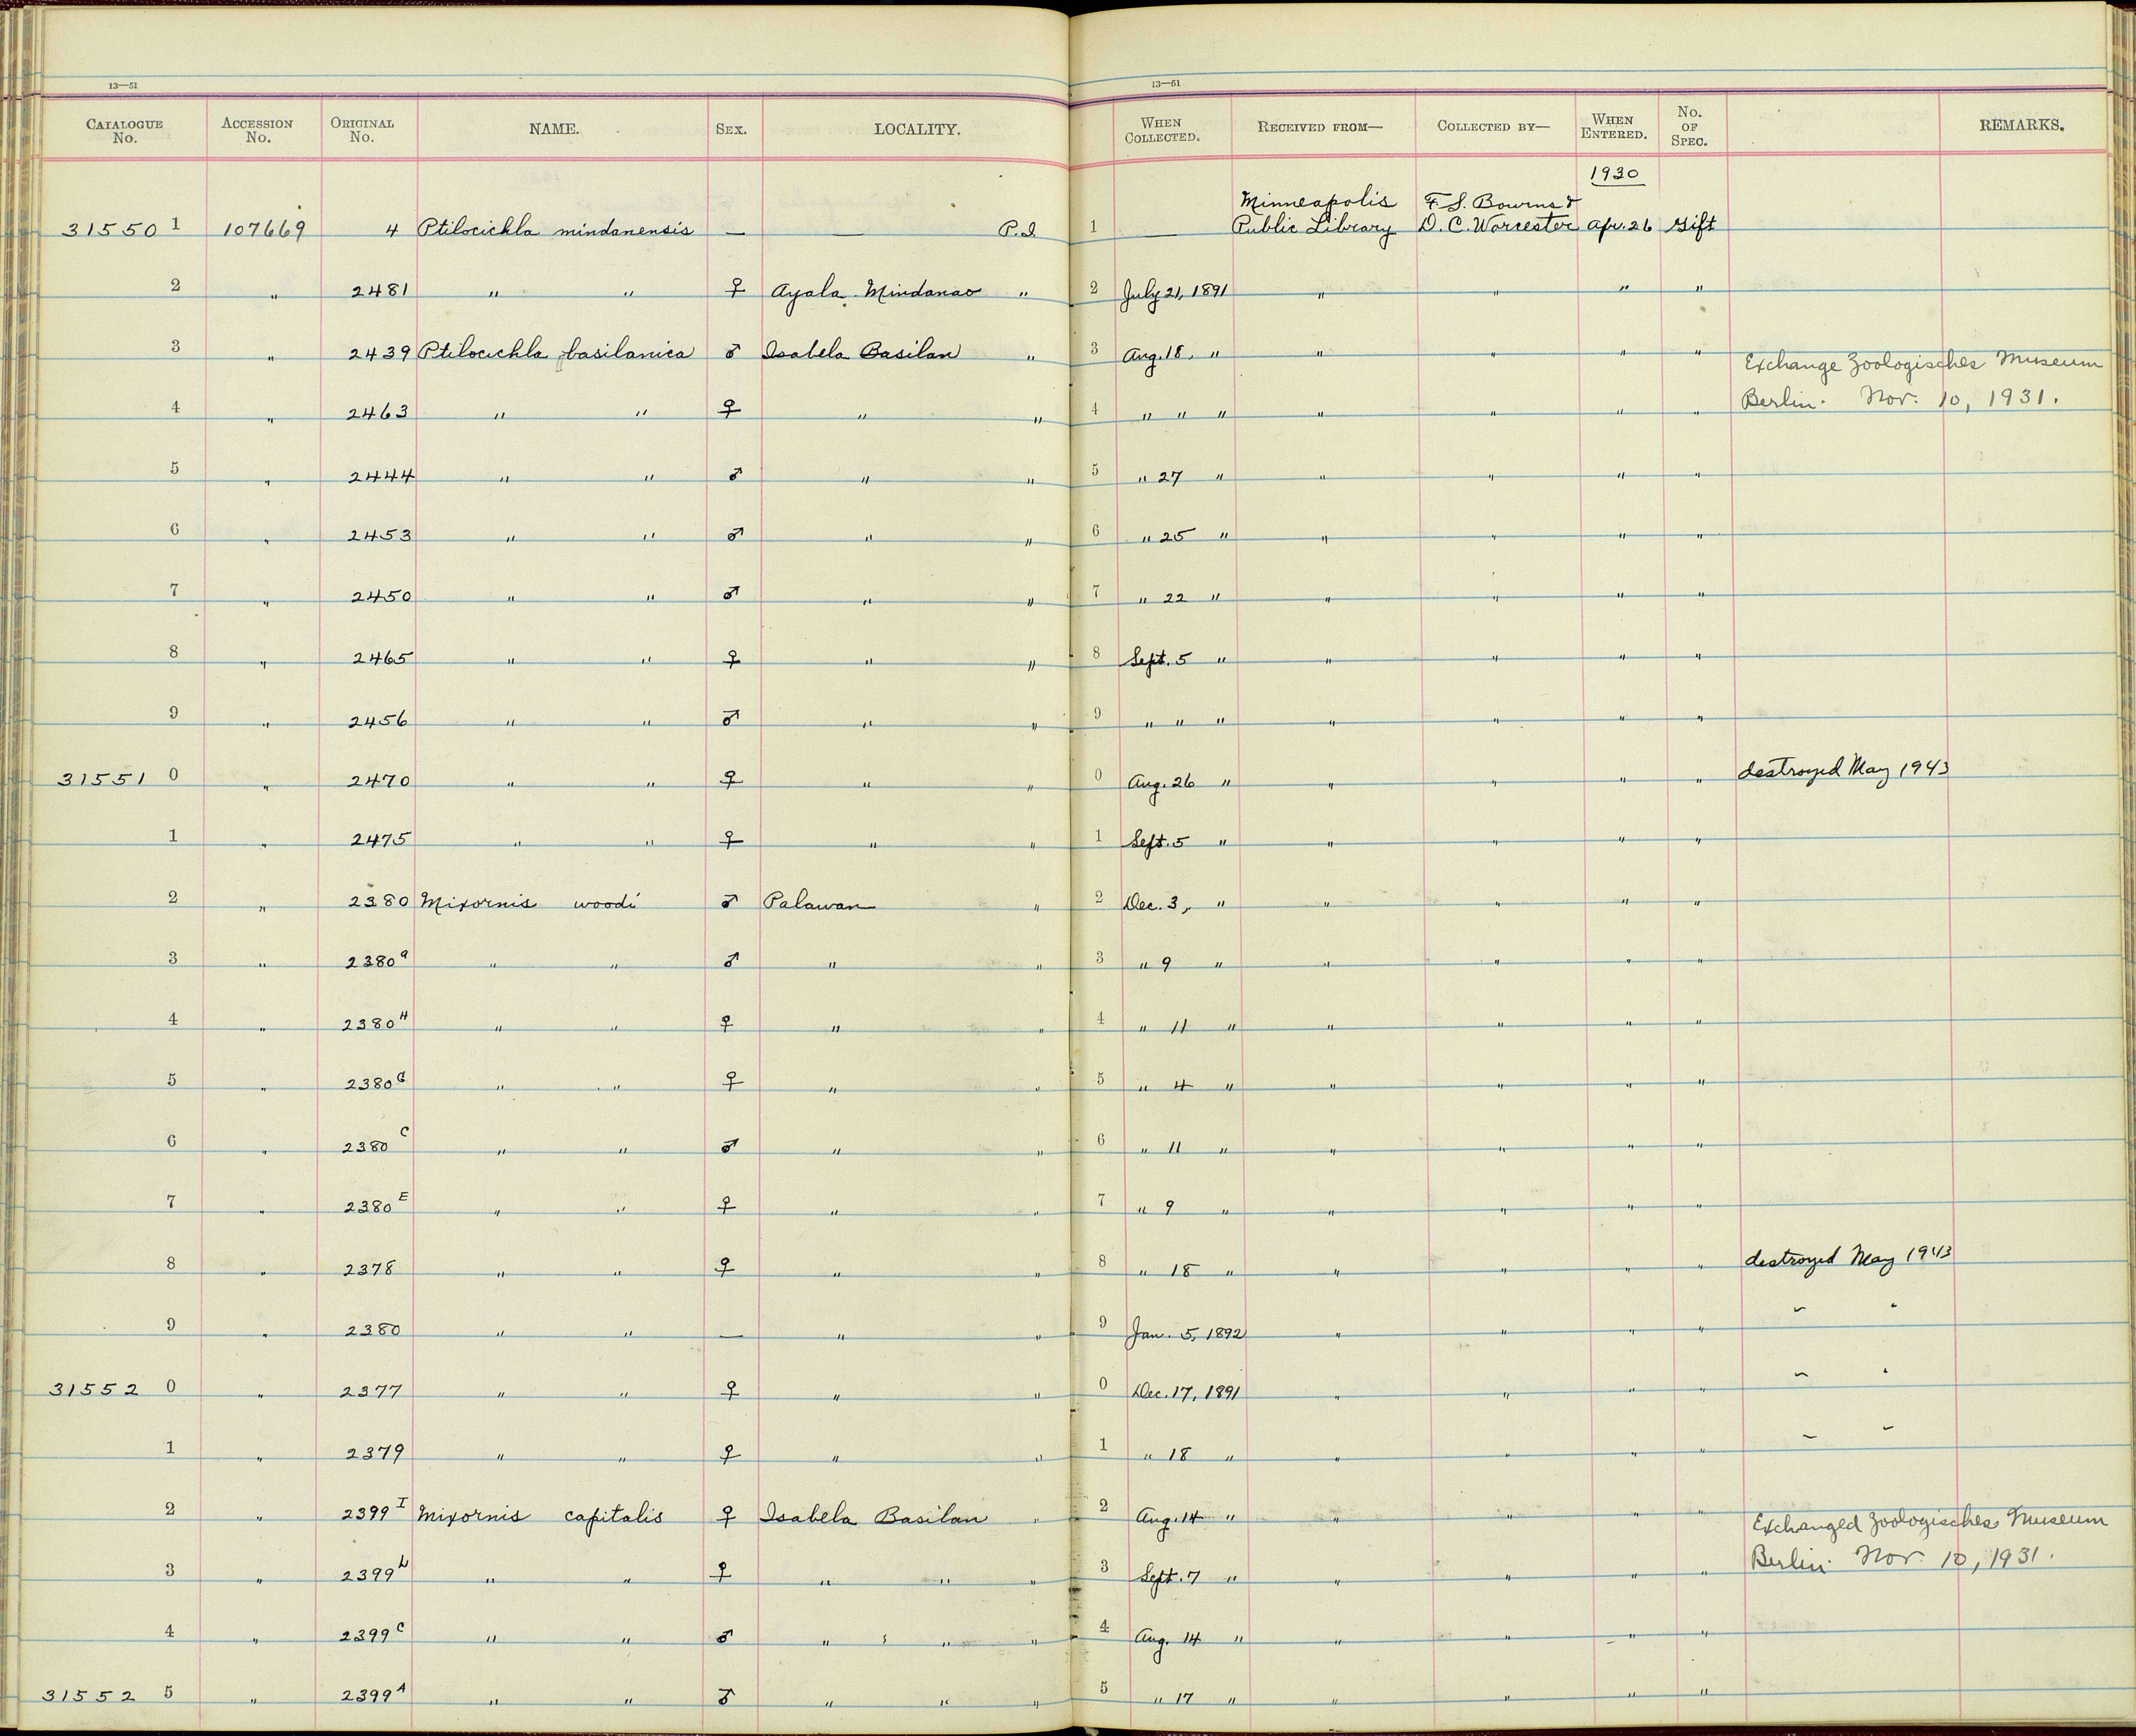 13—51 13—51
CATALOGUE No. ACCESSION No. ORIGINAL No. NAME. SEX. LOCALITY. WHEN COLLECTED. RECEIVED FROM— COLLECTED BY— WHEN ENTERED. No. OF SPEC. REMARKS.
1930
Minneapolis F. S. Bourns &
31550 1 107669 4 Ptilocichla mindanensis — — P.I. 1 — Public Library D. C. Worcester Apr. 26 Gift
2 " 2481 " " ♀ Ayala Mindanao " 2 July 21, 1891 " " " "
3 " 2439 Ptilocichla basilanica ♂ Isabela Basilan " 3 Aug. 18, " " " " " Exchange Zoologisches Museum
4 " 2463 " " ♀ " " 4 " " " " " " " Berlin. Nov. 10, 1931.
5 " 2444 " " ♂ " " 5 " 27 " " " " "
6 " 2453 " " ♂ " " 6 " 25 " " " " "
7 " 2450 " " ♂ " " 7 " 22 " " " " "
8 " 2465 " " ♀ " " 8 Sept. 5 " " " " "
9 " 2456 " " ♂ " " 9 " " " " " " "
31551 0 " 2470 " " ♀ " " 0 Aug. 26 " " " " " destroyed May 1943
1 " 2475 " " ♀ " " 1 Sept. 5 " " " " "
2 " 2380 Mixornis woodi ♂ Palawan " 2 Dec. 3, " " " " "
3 " 2380 a " " ♂ " " 3 " 9 " " " " "
4 " 2380 H " " ♀ " " 4 " 11 " " " " "
5 " 2380 G " " ♀ " " 5 " 4 " " " " "
6 " 2380 C " " ♂ " " 6 " 11 " " " " "
7 " 2380 E " " ♀ " " 7 " 9 " " " " "
8 " 2378 " " ♀ " " 8 " 18 " " " " " destroyed May 1943
9 " 2380 " " — " " 9 Jan. 5, 1892 " " " " " "
31552 0 " 2377 " " ♀ " " 0 Dec. 17, 1891 " " " " " "
1 " 2379 " " ♀ " " 1 " 18 " " " " " " "
2 " 2399 I Mixornis capitalis ♀ Isabela Basilan " 2 Aug. 14 " " " " " Exchanged Zoologisches Museum
3 " 2399 L " " ♀ " " " 3 Sept. 7 " " " " " Berlin. Nov. 10, 1931.
4 " 2399 C " " ♂ " " " 4 Aug. 14 " " " " "
31552 5 " 2399 A " " ♂ " " " 5 " 17 " " " " "